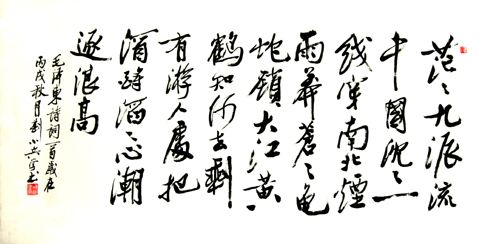 茫々九派流
中國沉々一
线穿南北煙
雨莽蒼々龜
蛇鎖大江黄
鶴知何去剩
有游人處把
酒酹滔々心潮
逐浪高
毛泽東詩詞一首歲在
丙戌秋月劉小